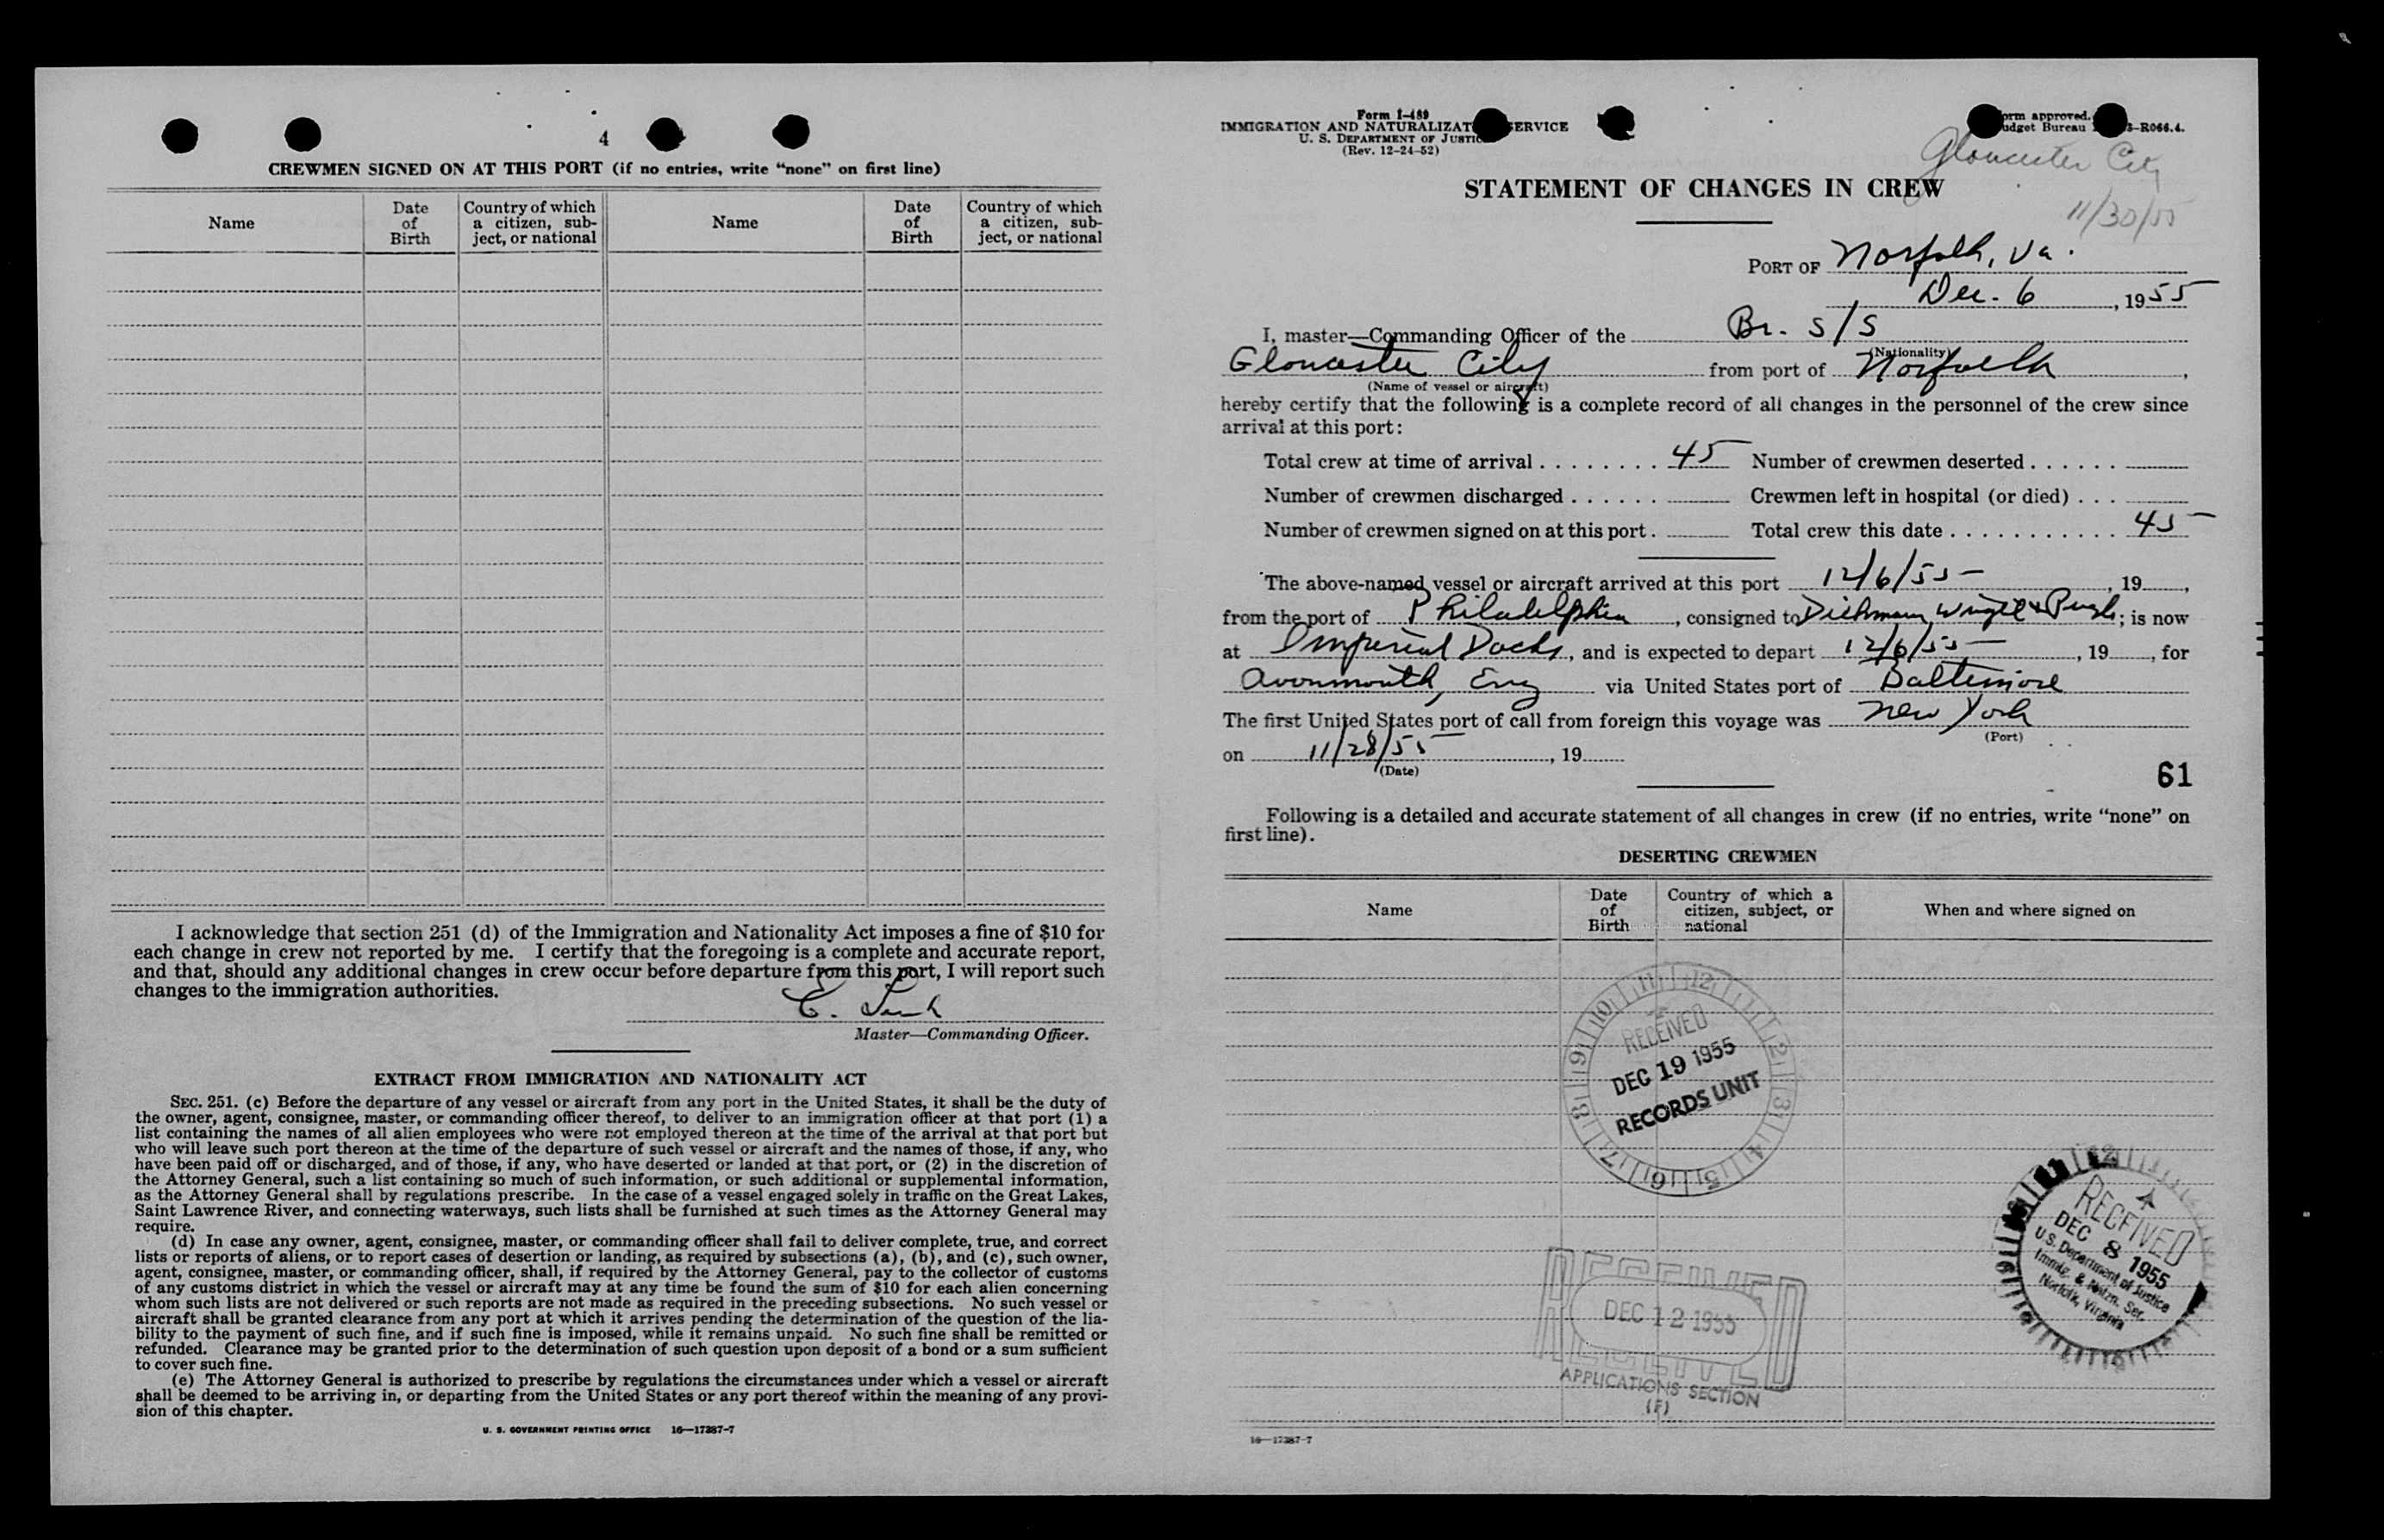 4
CREWMEN SIGNED ON AT THIS PORT (if no entries, write "none" on first line)
Name
Date of Birth
Country of which a citizen, sub-ject, or national
Name
Date of Birth
Country of which a citizen, sub-ject, or national
I acknowledge that section 251 (d) of the Immigration and Nationality Act imposes a fine of $10 for
each change in crew not reported by me. I certify that the foregoing is a complete and accurate report,
and that, should any additional changes in crew occur before departure from this port, I will report such
changes to the immigration authorities.
Master—Commanding Officer.
EXTRACT FROM IMMIGRATION AND NATIONALITY ACT
SEC. 251. (c) Before the departure of any vessel or aircraft from any port in the United States, it shall be the duty of
the owner, agent, consignee, master, or commanding officer thereof, to deliver to an immigration officer at that port (1) a
list containing the names of all alien employees who were not employed thereon at the time of the arrival at that port but
who will leave such port thereon at the time of the departure of such vessel or aircraft and the names of those, if any, who
have been paid off or discharged, and of those, if any, who have deserted or landed at that port, or (2) in the discretion of
the Attorney General, such a list containing so much of such information, or such additional or supplemental information,
as the Attorney General shall by regulations prescribe. In the case of a vessel engaged solely in traffic on the Great Lakes,
Saint Lawrence River, and connecting waterways, such lists shall be furnished at such times as the Attorney General may
require.
(d) In case any owner, agent, consignee, master, or commanding officer shall fail to deliver complete, true, and correct
lists or reports of aliens, or to report cases of desertion or landing, as required by subsections (a), (b), and (c), such owner,
agent, consignee, master, or commanding officer, shall, if required by the Attorney General, pay to the collector of customs
of any customs district in which the vessel or aircraft may at any time be found the sum of $10 for each alien concerning
whom such lists are not delivered or such reports are not made as required in the preceding subsections. No such vessel or
aircraft shall be granted clearance from any port at which it arrives pending the determination of the question of the lia-
bility to the payment of such fine, and if such fine is imposed, while it remains unpaid. No such fine shall be remitted or
refunded. Clearance may be granted prior to the determination of such question upon deposit of a bond or a sum sufficient
to cover such fine.
(e) The Attorney General is authorized to prescribe by regulations the circumstances under which a vessel or aircraft
shall be deemed to be arriving in, or departing from the United States or any port thereof within the meaning of any provi-
sion of this chapter.
U. S. GOVERNMENT PRINTING OFFICE 16—17387-7
Form I-489
IMMIGRATION AND NATURALIZAT SERVICE
U. S. DEPARTMENT OF JUSTIC
(Rev. 12-24-52)
orm approved.
udget Bureau 3-R066.4.
Gloucester City
11/30/55
STATEMENT OF CHANGES IN CREW
PORT OF Norfolk, Va.
Dec. 6, 1955
I, master—Commanding Officer of the Br. S/S
(Nationality)
Gloucester City from port of Norfolk,
(Name of vessel or aircraft)
hereby certify that the following is a complete record of all changes in the personnel of the crew since
arrival at this port:
Total crew at time of arrival . . . . . . . . 45 Number of crewmen deserted . . . . . .
Number of crewmen discharged . . . . . . Crewmen left in hospital (or died) . . .
Number of crewmen signed on at this port . Total crew this date . . . . . . . . . . . 45
The above-named vessel or aircraft arrived at this port 12/6/55, 19,
from the port of Philadelphia, consigned to Dichmann, Wright & Pugh; is now
at Imperial Docks, and is expected to depart 12/6/55, 19, for
Avonmouth, Eng via United States port of Baltimore
The first United States port of call from foreign this voyage was New York
(Port)
on 11/28/55, 19
(Date)
61
Following is a detailed and accurate statement of all changes in crew (if no entries, write "none" on
first line).
DESERTING CREWMEN
Name
Date of Birth
Country of which a citizen, subject, or national
When and where signed on
11 12 1 2 3 4 5 6 7 8 9 10
RECEIVED
DEC 19 1955
RECORDS UNIT
12
RECEIVED
DEC 8 1955
U.S. Department of Justice
Immig. & Natzn. Ser.
Norfolk, Virginia
RECEIVED
DEC 12 1955
RECEIVED
APPLICATIONS SECTION
(F)
16—17387-7